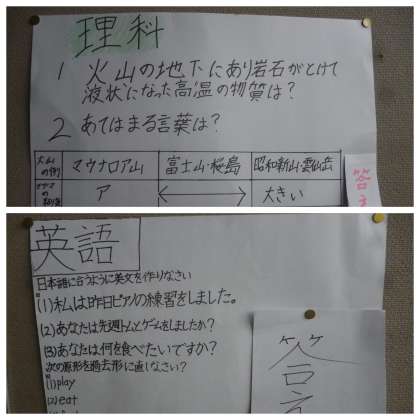 理科
1 火山の地下にあり岩石がとけて
液状になった高温の物質は?
2 あてはまる言葉は?
火山の例 マウナロア山 富士山・桜島 昭和新山・雲仙岳
ア ⟷ 大きい
答
英語
日本語に合うように英文を作りなさい
(1)私は昨日ピアノの練習をしました。
(2)あなたは先週トムとゲームをしましたか?
(3)あなたは何を食べたいですか?
次の原形を過去形に直しなさい?
(1)play
(2)eat
答